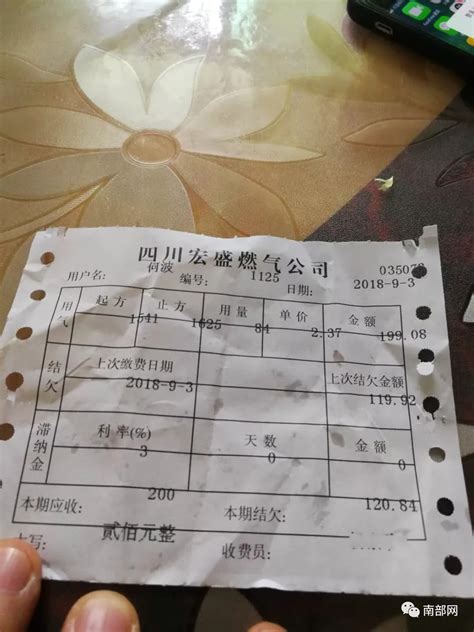 四川宏盛燃气公司
035078
用户名: 何波 编号: 1125 日期: 2018-9-3
用气 起方 止方 用量 单价 金额
1541 1625 84 2.37 199.08
结欠 上次缴费日期 上次结欠金额
2018-9-3 119.92
滞纳金 利率(%) 天数 金额
3 0 0
本期应收: 200 本期结欠: 120.84
大写: 贰佰元整 收费员:
南部网